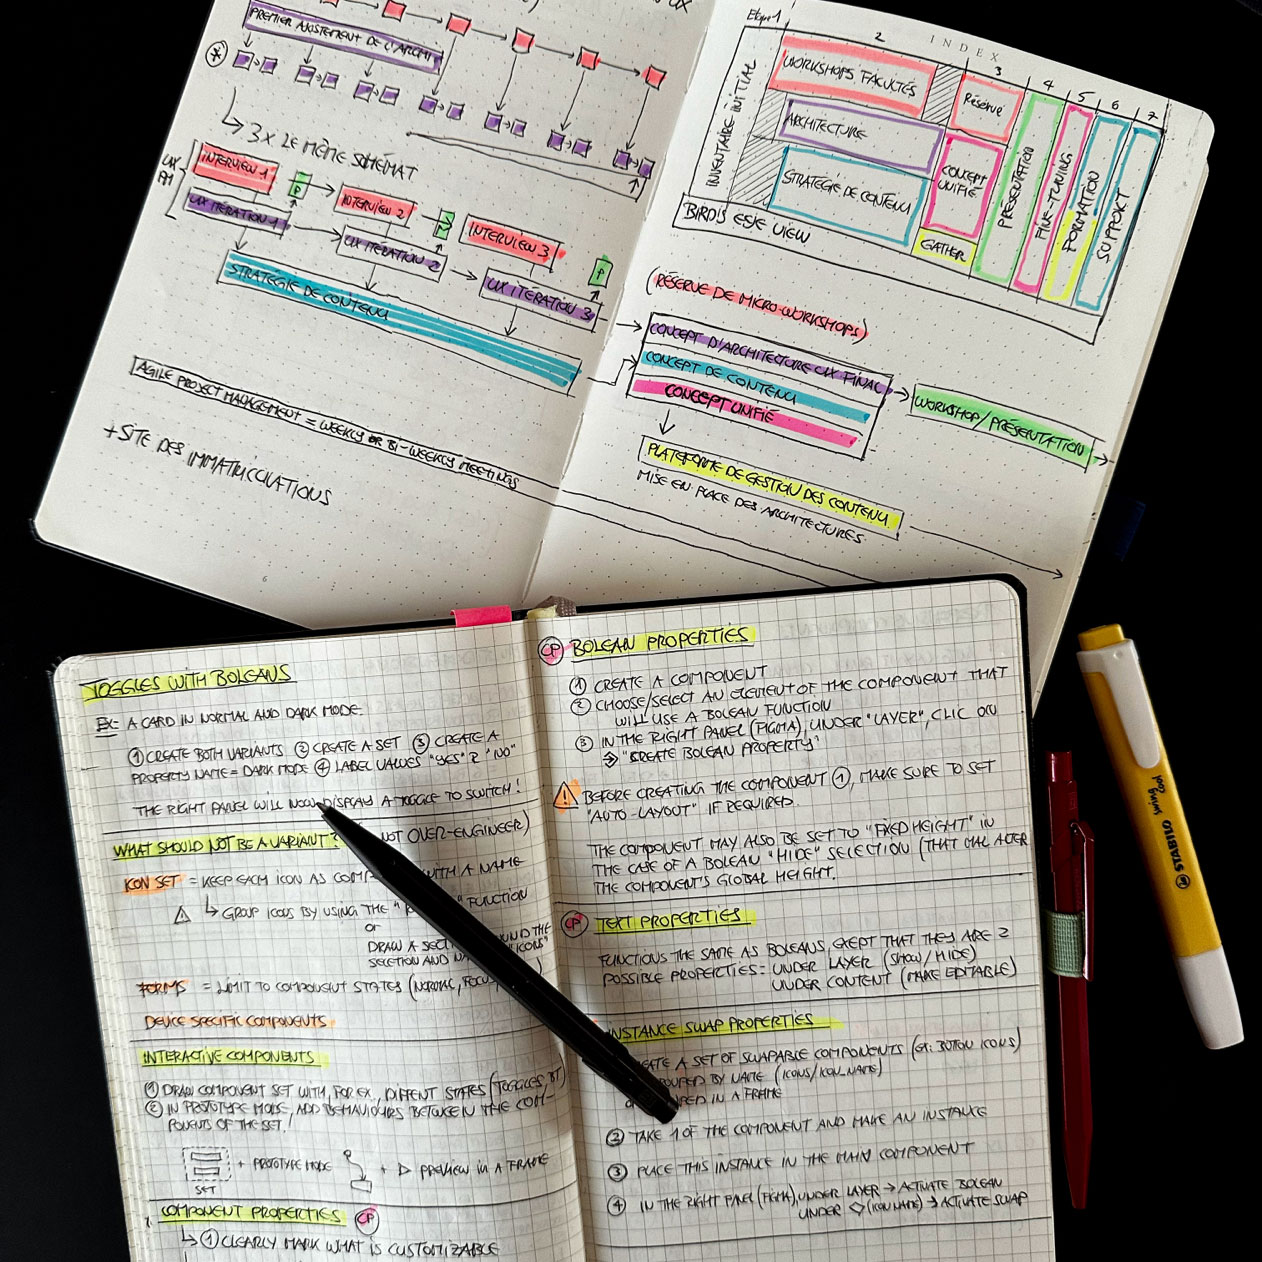 UX
PREMIER AJUSTEMENT DE L'ARCHI
*
3X LE MÊME SCHÉMAT
UX
INTERVIEW 1
P
INTERVIEW 2
INTERVIEW 3
P
UX ITÉRATION 1
UX ITÉRATION 2
UX ITÉRATION 3
STRATÉGIE DE CONTENU
AGILE PROJECT MANAGEMENT = WEEKLY OR BI-WEEKLY MEETINGS
+ SITE DES IMMATRICULATIONS
6
INDEX
Etape 1
2
3
4
5
6
7
INVENTAIRE INITIAL
WORKSHOPS FACULTÉS
Réserve
ARCHITECTURE
STRATÉGIE DE CONTENU
CONCEPT
UNIFIÉ
GATHER
PRÉSENTATION
FINE-TUNING
FORMATION
SUPPORT
BIRD'S EYE VIEW
(RÉSERVE DE MICRO-WORKSHOPS)
CONCEPT D'ARCHITECTURE UX FINAL
CONCEPT DE CONTENU
CONCEPT UNIFIÉ
WORKSHOP/PRÉSENTATION
PLATEFORME DE GESTION DES CONTENU
MISE EN PLACE DES ARCHITECTURES
TOGGLES WITH BOLEANS
EX: A CARD IN NORMAL AND DARK MODE.
① CREATE BOTH VARIANTS ② CREATE A SET ③ CREATE A
PROPERTY NAME = DARK MODE ④ LABEL VALUES "YES" & "NO"
THE RIGHT PANEL WILL NOW DISPLAY A TOGGLE TO SWITCH!
WHAT SHOULD NOT BE A VARIANT? NOT OVER-ENGINEER)
ICON SET = KEEP EACH ICON AS COMP WITH A NAME
⚠ ↳ GROUP ICONS BY USING THE " " FUNCTION
OR
DRAW A SECT ROUND THE
SELECTION AND NA "ICONS"
FORMS = LIMIT TO COMPONENT STATES (NORMAL, FOCUS )
DEVICE SPECIFIC COMPONENTS
INTERACTIVE COMPONENTS
① DRAW COMPONENT SET WITH, FOR EX, DIFFENT STATES (TOGGLES, BT)
② IN PROTOTYPE MODE, ADD BEHAVIOURS BETWEEN THE COM-
PONENTS OF THE SET!
+ PROTOTYPE MODE + ▷ PREVIEW IN A FRAME
SET
COMPONENT PROPERTIES CP
↳ ① CLEARLY MARK WHAT IS CUSTOMIZABLE
CP BOLEAN PROPERTIES
① CREATE A COMPONENT
② CHOOSE/SELECT AN ELEMENT OF THE COMPONENT THAT
WILL USE A BOLEAN FUNCTION
③ IN THE RIGHT PANEL (FIGMA), UNDER "LAYER", CLIC ON
⇒ "CREATE BOLEAN PROPERTY"
⚠ BEFORE CREATING THE COMPONENT ①, MAKE SURE TO SET
"AUTO-LAYOUT" IF REQUIRED.
THE COMPONENT MAY ALSO BE SET TO "FIXED HEIGHT" IN
THE CASE OF A BOLEAN "HIDE" SELECTION (THAT MAY ALTER
THE COMPONENT'S GLOBAL HEIGHT.
CP TEXT PROPERTIES
FUNCTIONS THE SAME AS BOLEANS, EXEPT THAT THEY ARE 2
POSSIBLE PROPERTIES = UNDER LAYER (SHOW/HIDE)
UNDER CONTENT (MAKE EDITABLE)
INSTANCE SWAP PROPERTIES
EATE A SET OF SWAPABLE COMPONENTS (EX: BUTTON ICONS)
OUPED BY NAME (ICONS/ICON_NAME)
PED IN A FRAME
② TAKE 1 OF THE COMPONENT AND MAKE AN INSTANCE
③ PLACE THIS INSTANCE IN THE MAIN COMPONENT
④ IN THE RIGHT PANEL (FIGMA), UNDER LAYER → ACTIVATE BOLEAN
UNDER ◇ (ICON NAME) → ACTIVATE SWAP
STABILO
swing cool